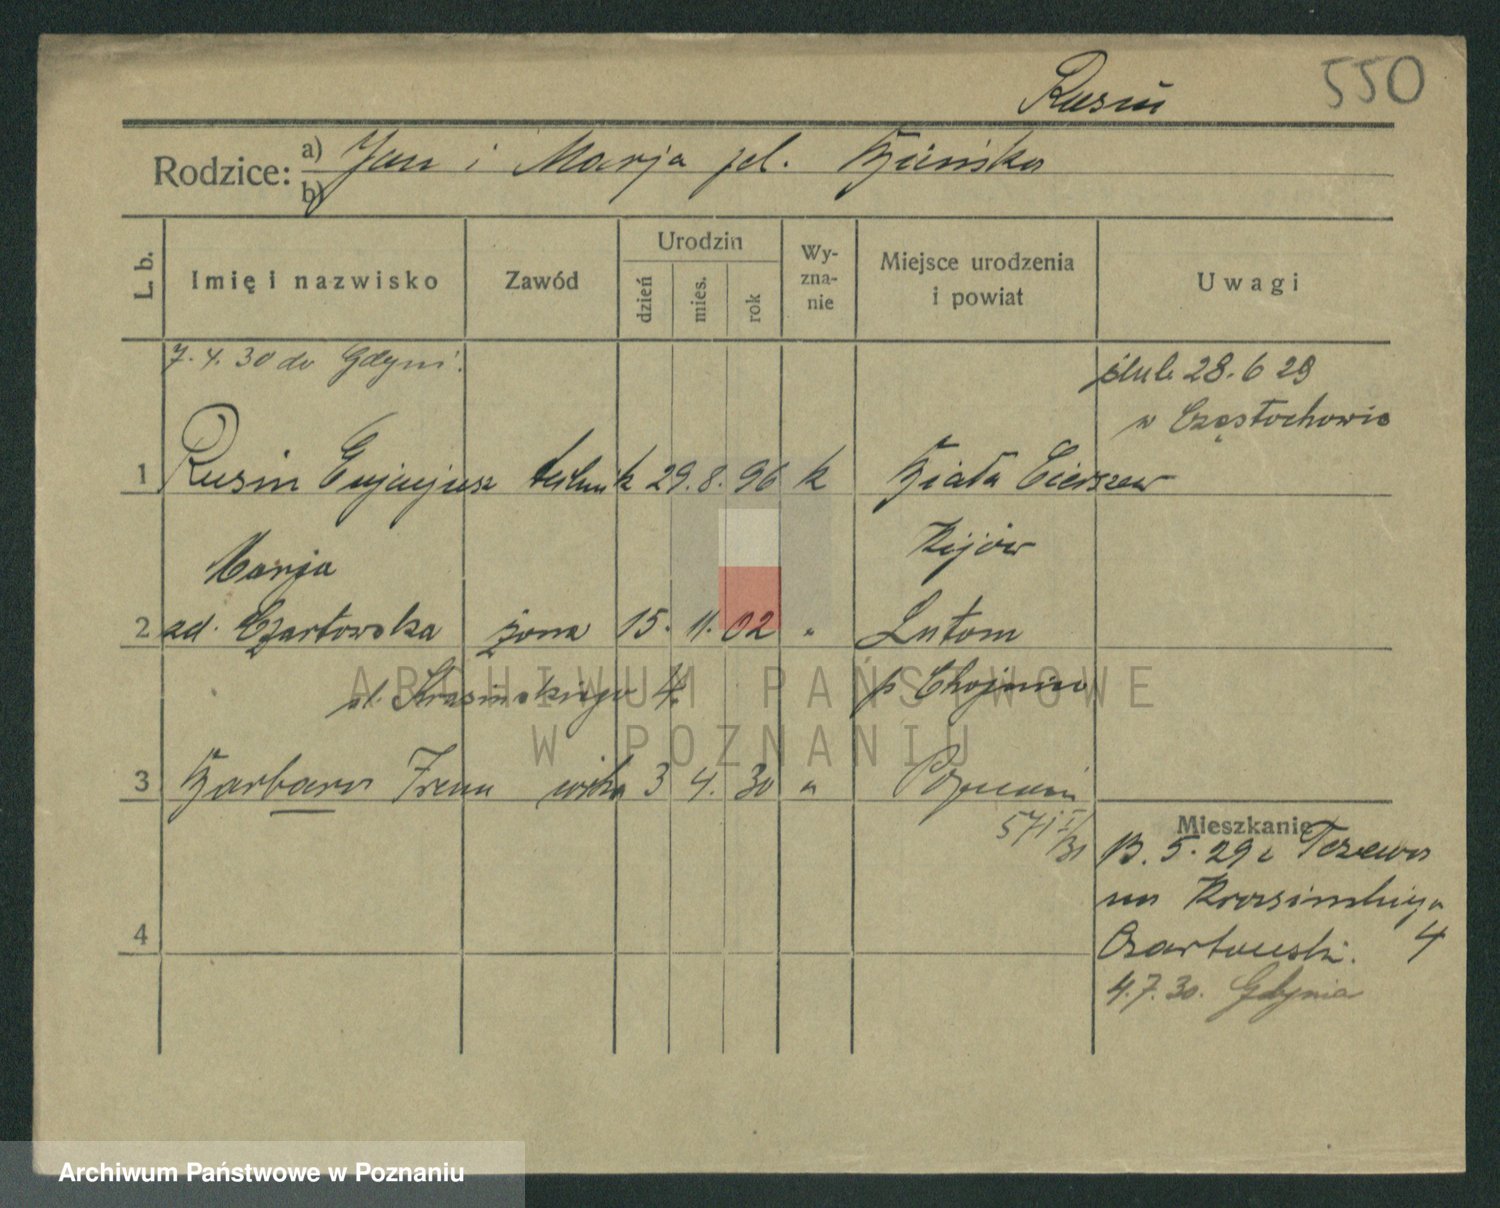 550
Rusin
Rodzice: a) Jan i Marja zd.
b)
L. b. Imię i nazwisko Zawód Urodzin dzień mies. rok Wy-zna-nie Miejsce urodzenia i powiat Uwagi
7. 4. 30 do Gdyni
ślub 28. 6 29
w Częstochowie
1 Rusin technik 29. 8. 96 k Biała
Kijów
Marja
2 zd. Czartowska żona 15. 11. 02 " Lutom
p Chojnice
ul. Krasińskiego 4
3 Barbara Irena córka 3 4. 30 " Poznań
571 I/31
Mieszkanie
13. 5. 29 z Tczewa
na Krasińskiego
4 Czartowski. 4
4. 7. 30. Gdynia
ARCHIWUM PAŃSTWOWE
W POZNANIU
Archiwum Państwowe w Poznaniu